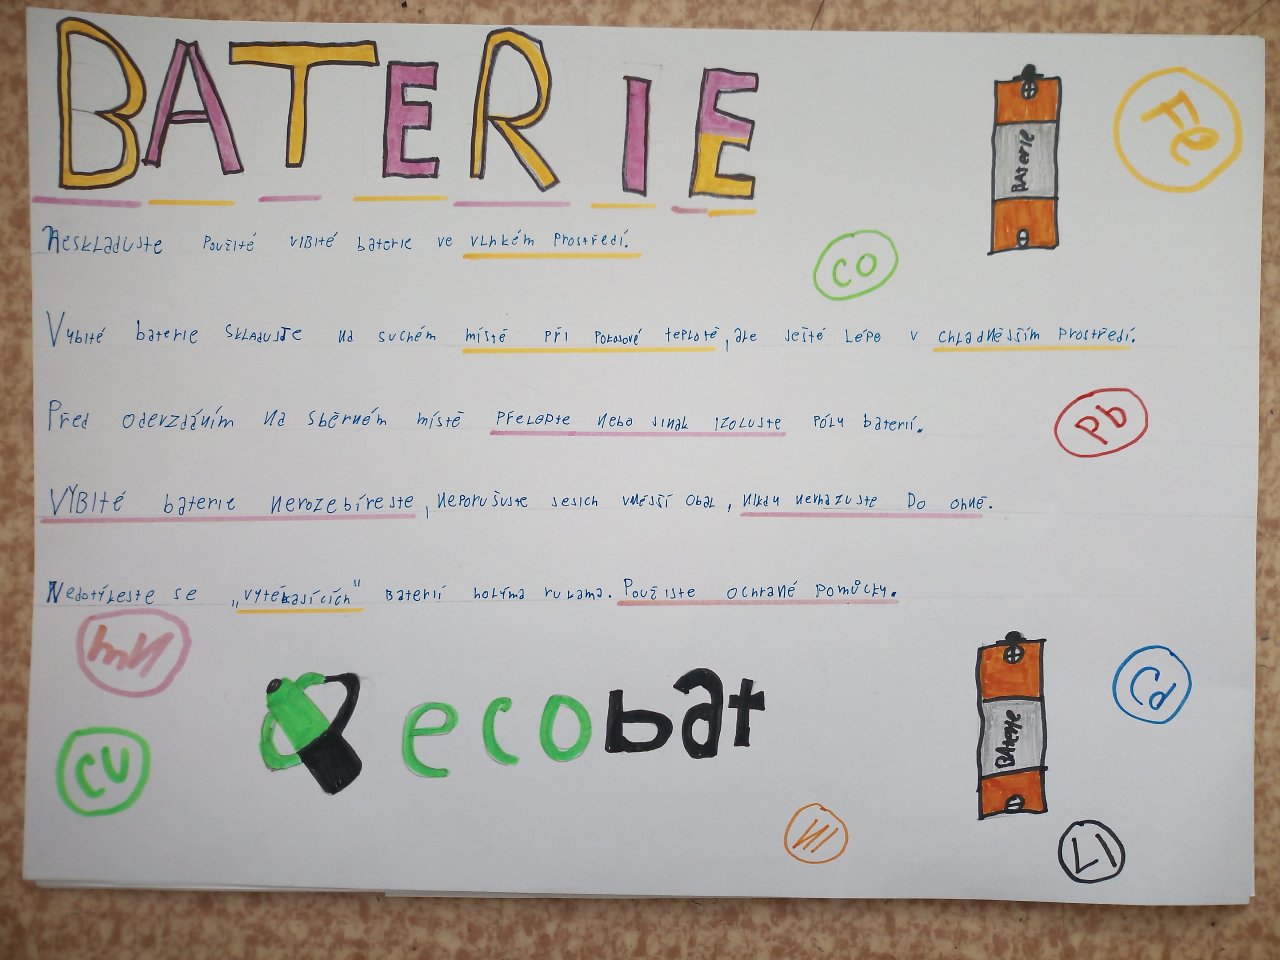 BATERIE
BAterie
Fe
Neskladujte použité vibité baterie ve vlhkém prostředí.
CO
Vybité baterie skladujte na suchém místě při pokojové teplotě, ale ještě lépe v chladnějším prostředí.
Před oderzdáním na sběrném místě přelepte nebo jinak izolujte póly baterií.
Pb
VYBIté baterie nerozebírejte, neporušujte jejich vnější obal, nikdy nevhazujte do ohně.
Nedotýkejte se „vytékajících" baterií holýma rukama. Použijte ochrané pomůcky.
mn
ecobat
BAterie
Cd
CU
NI
LI